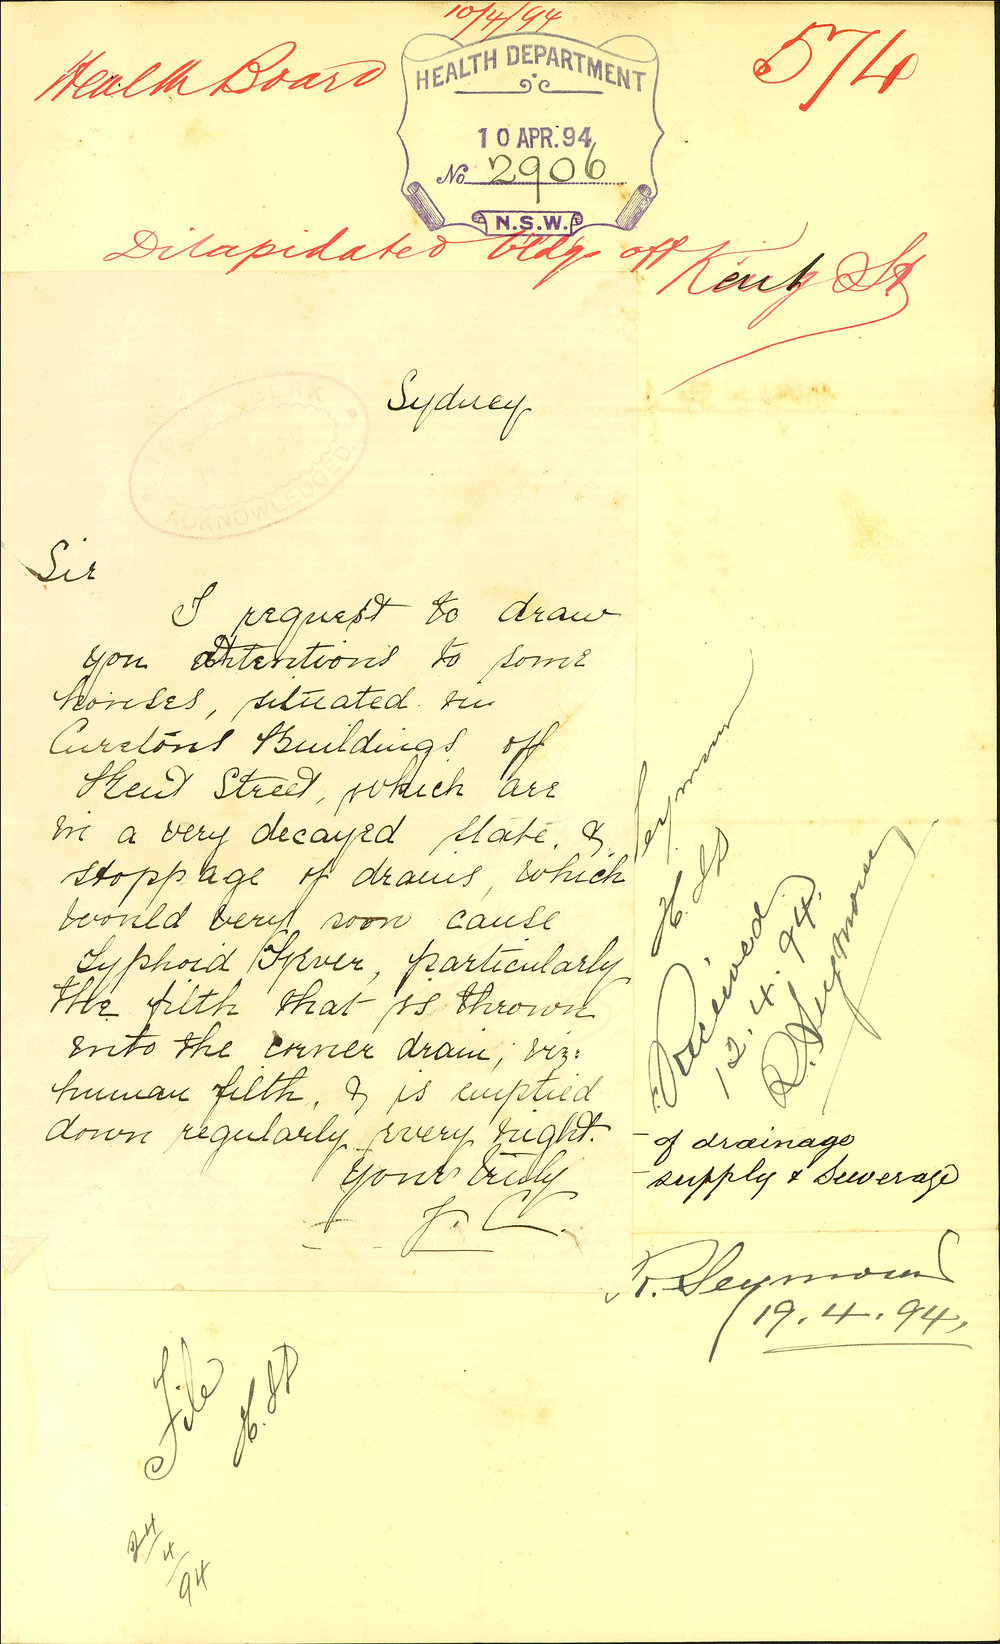 10/4/94
Health Board
574
HEALTH DEPARTMENT
10 APR. 94
No 2906
N.S.W.
Dilapidated bldgs off Kent St
ACKNOWLEDGED
Sydney
Sir
I request to draw
you attentions to some
houses, situated in
Curetons Buildings off
Kent Street, which are
in a very decayed state, &
stoppage of drains, which
would very soon cause
Typhoid Fever, particularly
the filth that is thrown
into the corner drain, viz:
human filth, & is emptied
down regularly every night.
Yours truly
J. C.
Seymour
Received
12.4.94.
R. Seymour
- of drainage
- supply & Sewerage
R. Seymour
19.4.94,
File
24/4/94